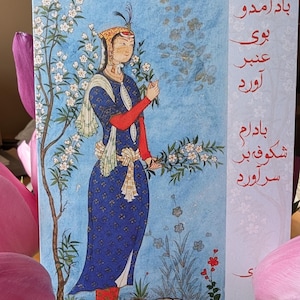 باد آمد و
بوی
عنبر
آورد
بادام
شکوفه بر
سر آورد